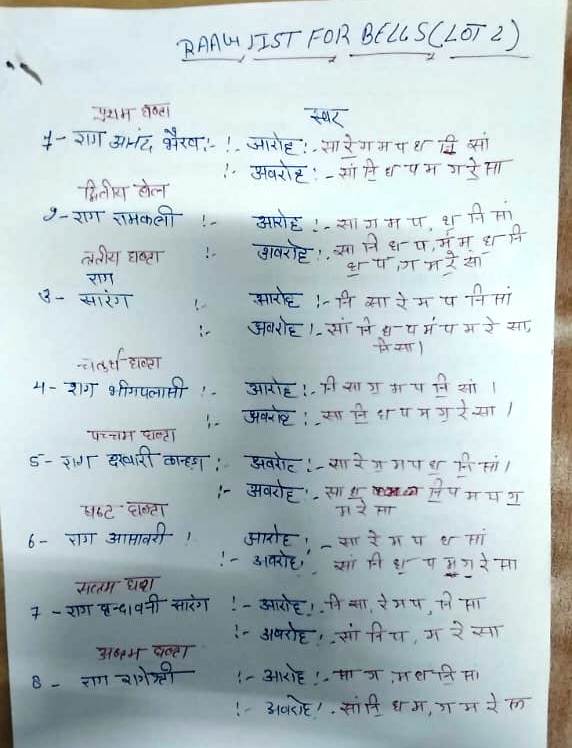 RAAG LIST FOR BELLS (LOT 2)
प्रथम घण्टा स्वर
1- राग आनंद भैरव :- !- आरोह :- सा रे॒ ग म प ध नि सां
!- अवरोह :- सां नि॒ ध प म ग रे॒ सा
द्वितीय
2- राग रामकली !- आरोह !- सा ग म प, ध॒ नि सां
तृतीय घण्टा !- अवरोह !- सा नि ध॒ प, म॑ म ध॒ नि
राग ध॒ प, ग म रे॒ सा
3- सारंग !- आरोह !- नि सा रे म प नि सां
!- अवरोह !- सां नि ध प म॑ प म रे सा,
नि सा।
चतुर्थ घण्टा
4- राग भीमपलासी !- आरोह :- नि सा ग॒ म प नि॒ सां ।
!- अवरोह :- सा नि॒ ध प म ग॒ रे सा ।
पन्चम घण्टा
5- राग दरबारी कान्हड़ा : अवरोह :- सा रे ग॒ म प ध॒ नि॒ सां।
!- अवरोह :- सा ध॒ नि॒ प म प ग॒
म रे सा
षष्ट घण्टा
6- राग आसावरी ! आरोह !- सा रे म प ध॒ सां
!- अवरोह !- सां नि ध॒ प म ग रे सा
सप्तम घण्टा
7- राग वृन्दावनी सारंग !- आरोह !- नि सा, रे म प, नि सा
!- अवरोह !- सां नि॒ प, म रे सा
अष्टम घण्टा
8- राग रागेश्री !- आरोह !- सा ग, म ध नि॒ सा
!- अवरोह !- सां नि॒ ध म, ग म रे